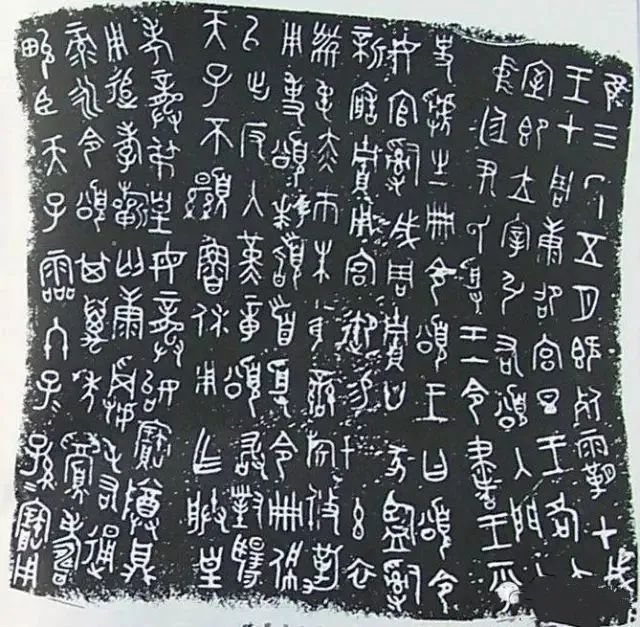 隹三年五月既死霸甲戌
王才周康卲宮旦王各大
室即立宰引右頌入門立
中廷尹氏受王令書王乎
史虢生冊令頌王曰頌令
女官𤔲成周貯廿家監𤔲
新造貯用宮御易女玄衣
黹屯赤巿朱黃鑾旂攸勒
用事頌拜𩒨首受令冊佩
以出反入堇章頌敢對揚
天子不顯魯休用乍朕皇
考龏弔皇母龏始寶尊鼎
用追孝𣄨匄康𠭯屯右通
彔永令頌其萬年眉壽
畯臣天子霝冬子子孫孫寶用